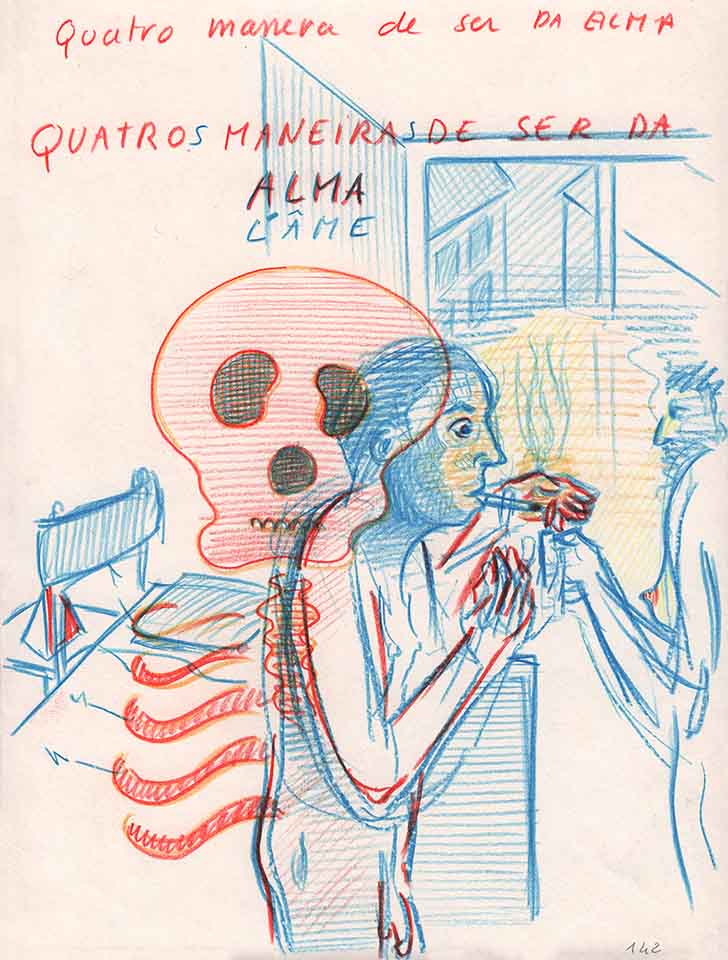 Quatro manera de ser DA ALMA
QUATROS MANEIRAS DE SER DA
ALMA
L'ÂME
142